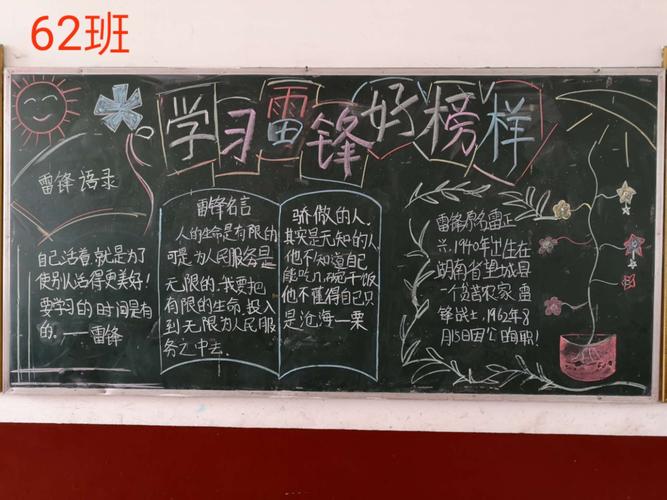 62班
学习雷锋好榜样
雷锋语录
自己活着,就是为了
使别人活得更美好!
要学习的时间是有
的.——雷锋
雷锋名言
人的生命是有限的
可是,为人民服务是
无限的,我要把
有限的生命,投入
到无限为人民服
务之中去.
骄傲的人.
其实是无知的人
他不知道自己
能吃几碗干饭
他不懂得自己只
是沧海一粟
雷锋原名雷正
兴.1940年出生在
湖南省望城县
一个贫苦农家雷
锋战士.1962年8
月15日因公殉职!